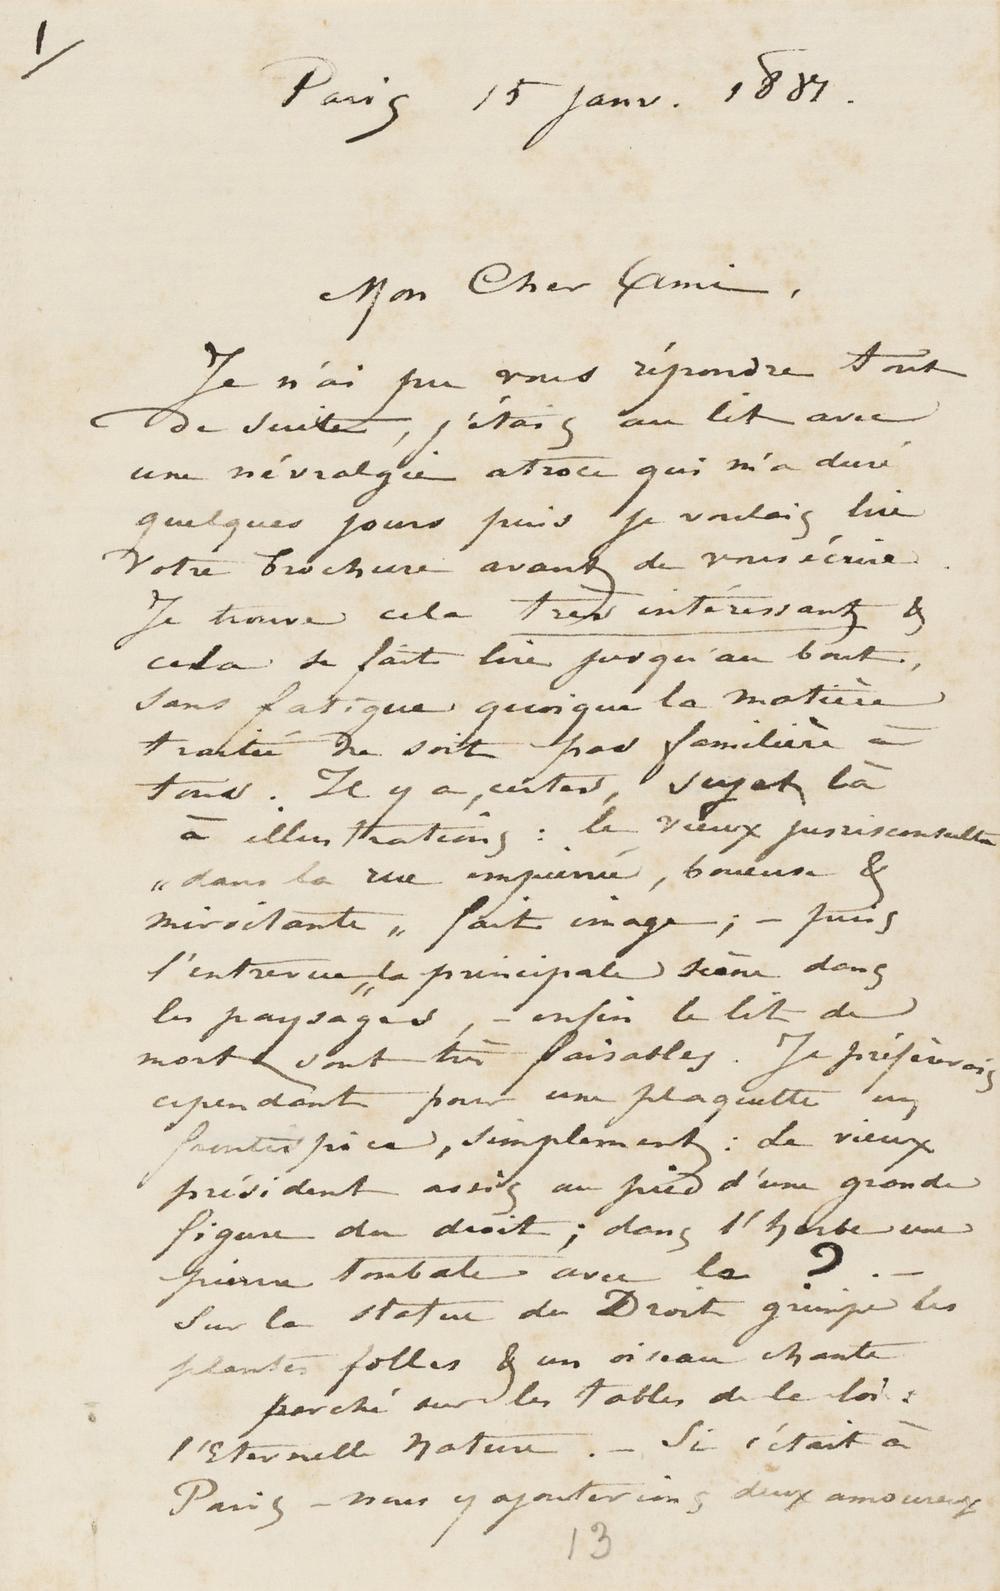 1/
Paris 15 janv. 1881.
Mon Cher Ami,
Je n'ai pu vous répondre tout
de suite, j'étais au lit avec
une névralgie atroce qui m'a duré
quelques jours puis je voulais lire
votre brochure avant de vous écrire.
Je trouve cela très intéressant &
cela se fait lire jusqu'au bout,
sans fatigue quoique la matière
traitée ne soit pas familière à
tous. Il y a, certes, sujet là
à illustrations : le vieux jurisconsulte
„dans la rue empierrée, boueuse &
miroitante„ fait image ; – puis
l'entrevue „la principale scène dans
les paysages, – enfin le lit de
mort sont très faisables. Je préférerais
cependant pour une plaquette un
frontispice, simplement : Le vieux
président assis au pied d'une grande
figure du droit ; dans l'herbe une
pierre tombale avec le ? . –
Sur la statue du Droit grimpe les
plantes folles & un oiseau chante
perché sur les tables de la loi :
l'Eternelle Nature . – Si c'était à
Paris – nous y ajouterions deux amoureux
13